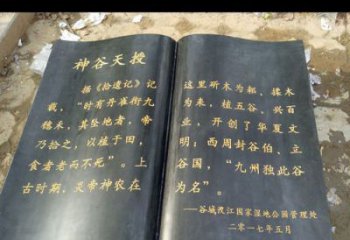 神谷天授
据《拾遗记》记
载，“时有丹雀衔九
穗禾，其坠地者，帝
乃拾之，以植于田，
食者老而不死”。上
古时期，炎帝神农在
这里斫木为耜，揉木
为耒，植五谷，兴百
业，开创了华夏文
明；西周封谷伯，立
谷国，“九州独此谷
为名”。
——谷城汉江国家湿地公园管理处
二零一七年五月